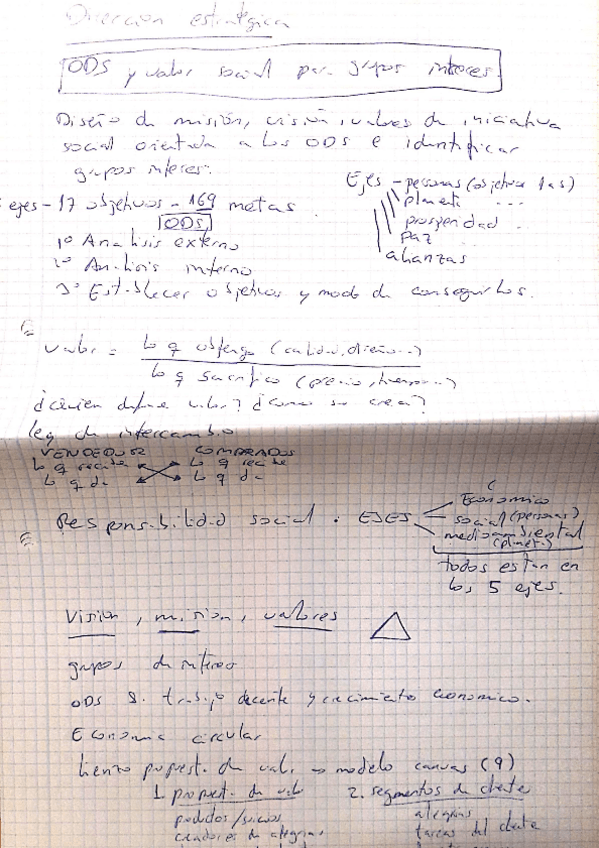 Dirección estratégica
ODS y valor social para grupos interes
Diseño de misión, visión, valores de iniciativa
social orientada a los ODS e identificar
grupos interes.
ejes - 17 objetivos - 169 metas.
ODS
Ejes - personas (objetivos 1 a 5)
planeta ...
prosperidad ...
paz ...
alianzas
1º Analisis externo
2º Analisis interno
3º Establecer objetivos y modo de conseguirlos.
valor = lo q obtengo (calidad, diseño...)
lo q sacrifico (precio, tiempo...)
¿quien define valor? ¿como se crea?
ley de intercambio
VENDEDOR COMPRADOR
lo q recibe lo q recibe
lo q da lo q da
Responsabilidad social : EJES
Economico
social (personas)
medioambiental
(planeta)
todos estan en
los 5 ejes.
Visión, misión, valores
grupos de interes
ODS 8. trabajo decente y crecimiento economico.
Economia circular
lienzo propuest. de valor → modelo canvas (9)
1. propuest. de valor 2. segmentos de cliente
productos/servicios alegrias
creadores de alegrias tareas del cliente